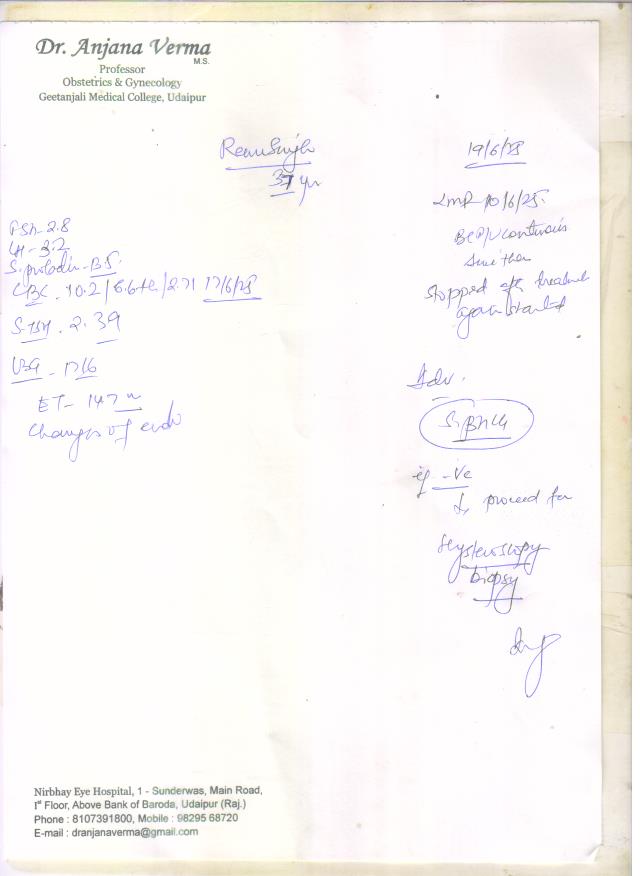 Dr. Anjana Verma
M.S.
Professor
Obstetrics & Gynecology
Geetanjali Medical College, Udaipur
Renu Singh
37 yr
19/6/25
LMP 10/6/25.
BEP/V continuous
since then
stopped after treatment
again started
FSH - 2.8
LH - 3.2
S. prolactin -
CBC - 10.2 / 2.71 17/6/25
S. TSH - 2.39
USG - 17/6
ET - 14.7
Changes of endo
Adv.
S. BHCG
if -ve
proceed for
Hysteroscopy
biopsy
Nirbhay Eye Hospital, 1 - Sunderwas, Main Road,
Ist Floor, Above Bank of Baroda, Udaipur (Raj.)
Phone : 8107391800, Mobile : 98295 68720
E-mail : dranjanaverma@gmail.com